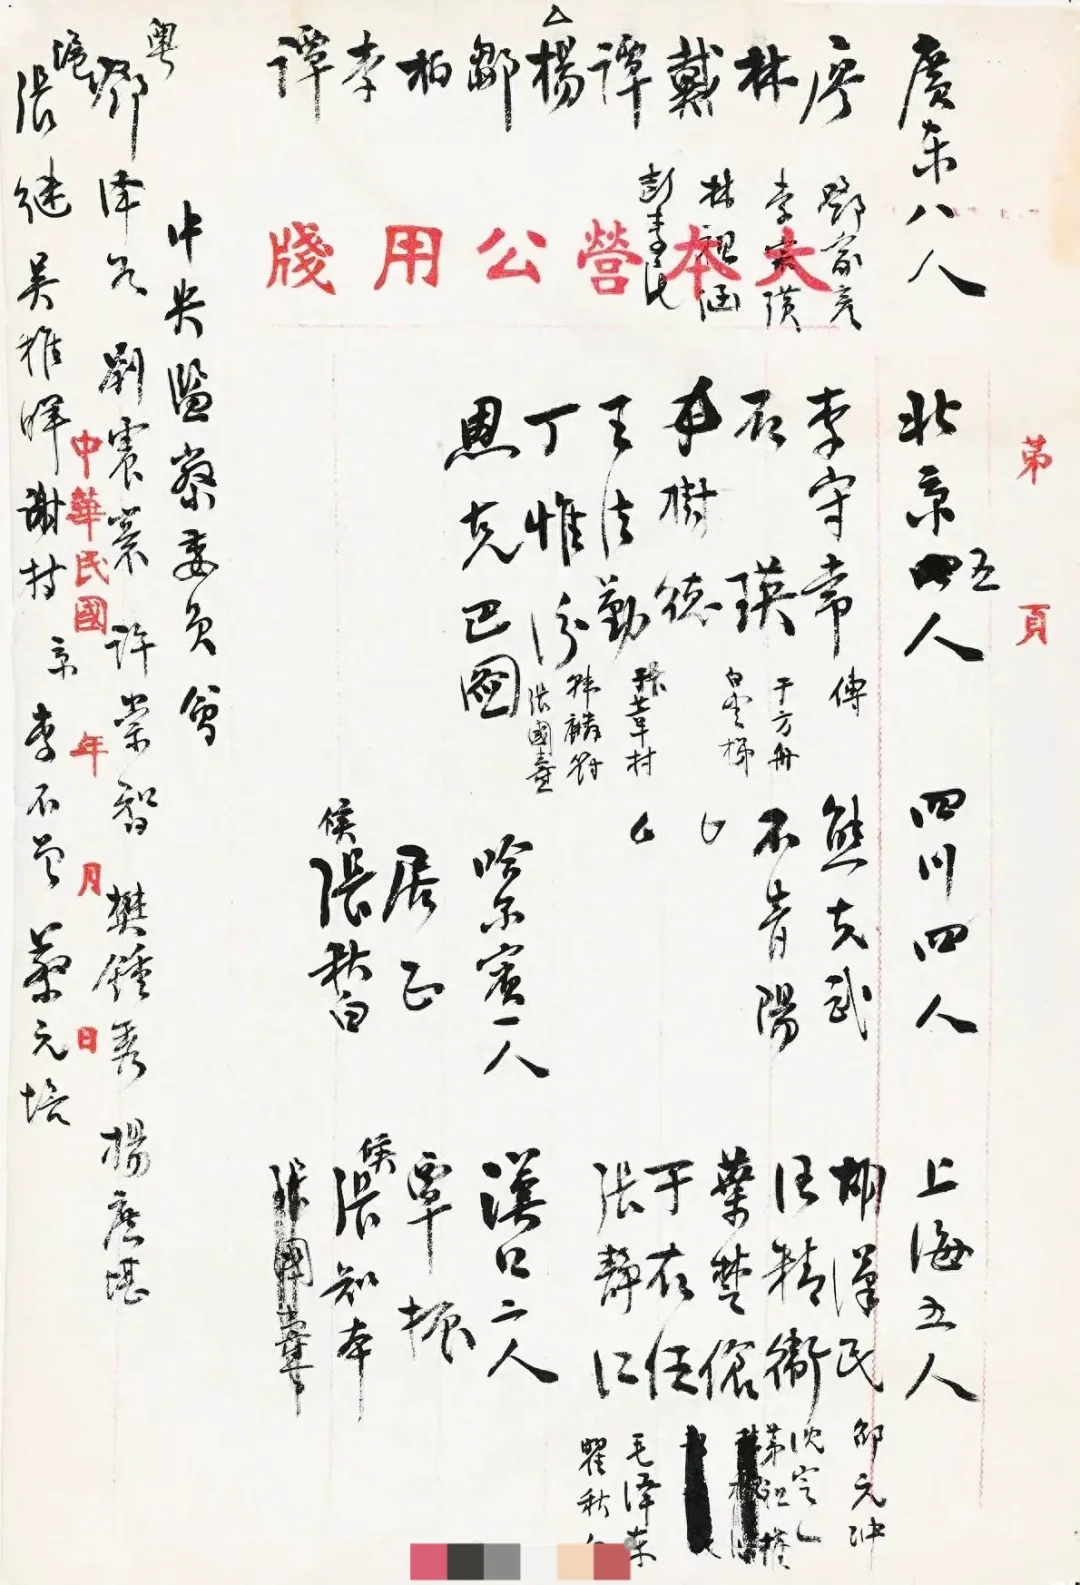 大本營公用牋
第 頁
廣东八人
廖
林
戴
譚
楊
鄒
柏
李
譚
鄧家彦
李宗黄
林祖涵
彭素民
北京五人
李守常
石瑛
于樹德
王法勤
丁惟汾
恩克巴图
傅
于方舟
白雲梯
張葦村
韩麟符
張國燾
四川四人
熊克武
石青陽
哈尔宾一人
居正
候
張秋白
上海五人
胡漢民
汪精衛
葉楚傖
于右任
張靜江
邵元冲
沈定一
茅祖權
毛泽东
瞿秋白
漢口二人
覃振
候
張知本
張國燾
中央監察委員會
粤
鄧泽如 劉震寰 许崇智 樊鍾秀 楊庶堪
滬
張继 吴稚晖 謝持 京 李石曾 蔡元培
中華民國 年 月 日